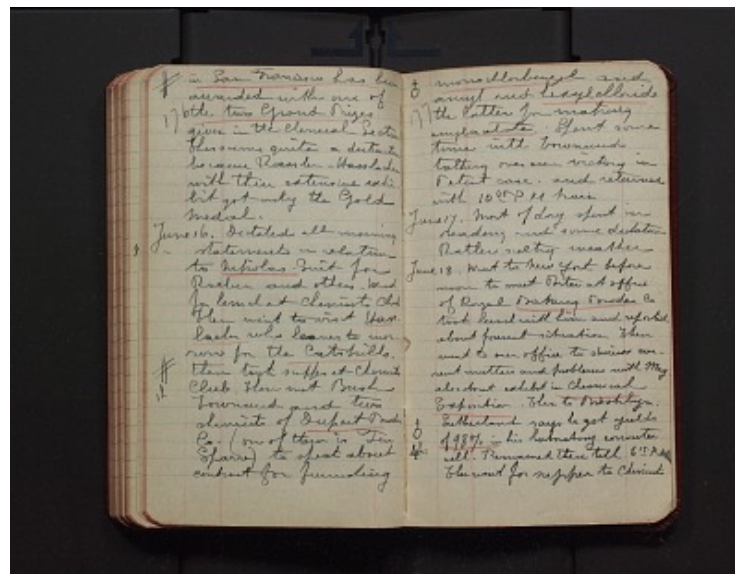 in San Francisco has been
awarded with one of
176 the two Grand Prizes
given in the Chemical Section
This is quite a distinction
because Roessler-Hasslacher
with their extensive exhi-
bit got only the Gold
Medal.
June 16. Dictated all morning
statements in relation
to Nikolas Suit for
and others.
for lunch at Chemists Club
Then went to visit Has-
lacher who leaves to mor-
row for the Catskills.
Then took supper at Chemists
Club. Then met Brush
Townsend and two
chemists of Dupont Powder
Co. (one of them is Dr
Sparre) to speak about
contract for furnishing
177 monochlorbenzol and
amyl and hexylchloride
the latter for making
amylacetate. Spent some
time with Townsend
talking over our victory in
Patent case. and returned
with 10 P.M. train
June 17. Most of day spent in
reading and some dictation
Rather sultry weather
June 18. Went to New York before
noon to meet at office
of Royal Baking Powder Co
took lunch with him and reported
about present situation. Then
went to our office to discuss cur-
rent matters and problems with
also about exhibit in Chemical
Exposition. Then to Brooklyn.
Sutherland says he got yields
of 98% in his laboratory converter
cell. Remained there till 6 P.M.
Then went for supper to Chemist